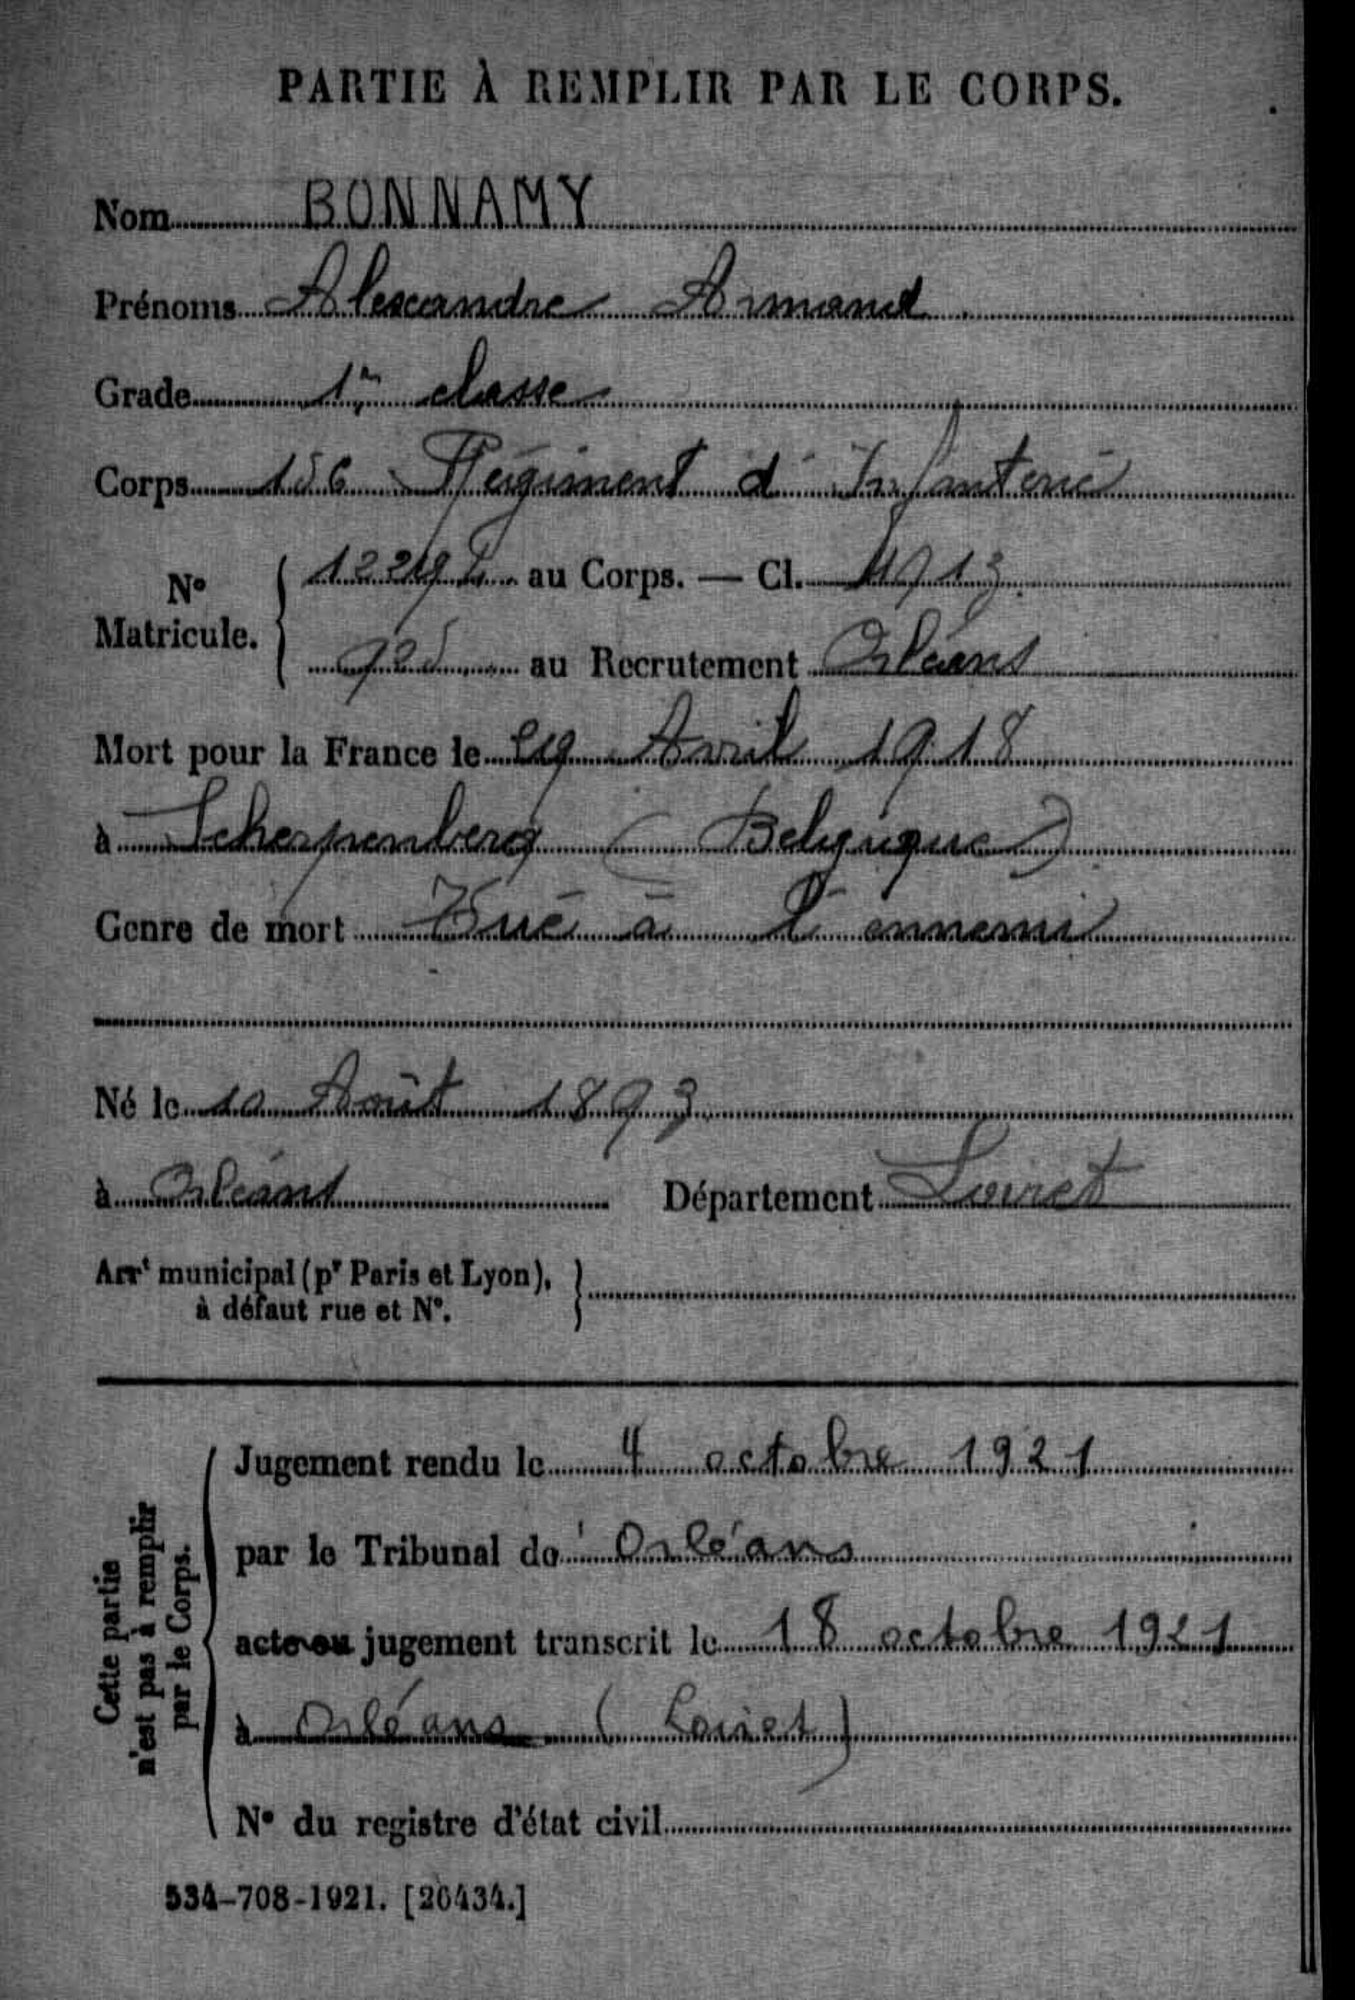 PARTIE À REMPLIR PAR LE CORPS.
Nom BONNAMY
Prénoms Alexandre Armand
Grade 1re classe
Corps 156 Régiment d'Infanterie
No Matricule. au Corps. — Cl. 1913
925 au Recrutement Orléans
Mort pour la France le 29 Avril 1918
à Scherpenberg (Belgique)
Genre de mort Tué à l'ennemi
Né le 10 Août 1893
à Orléans Département Loiret
Arrt municipal (pr Paris et Lyon), à défaut rue et No.
Cette partie n'est pas à remplir par le Corps.
Jugement rendu le 4 octobre 1921
par le Tribunal de Orléans
acte ou jugement transcrit le 18 octobre 1921
à Orléans (Loiret)
No du registre d'état civil
534-708-1921. [26434.]